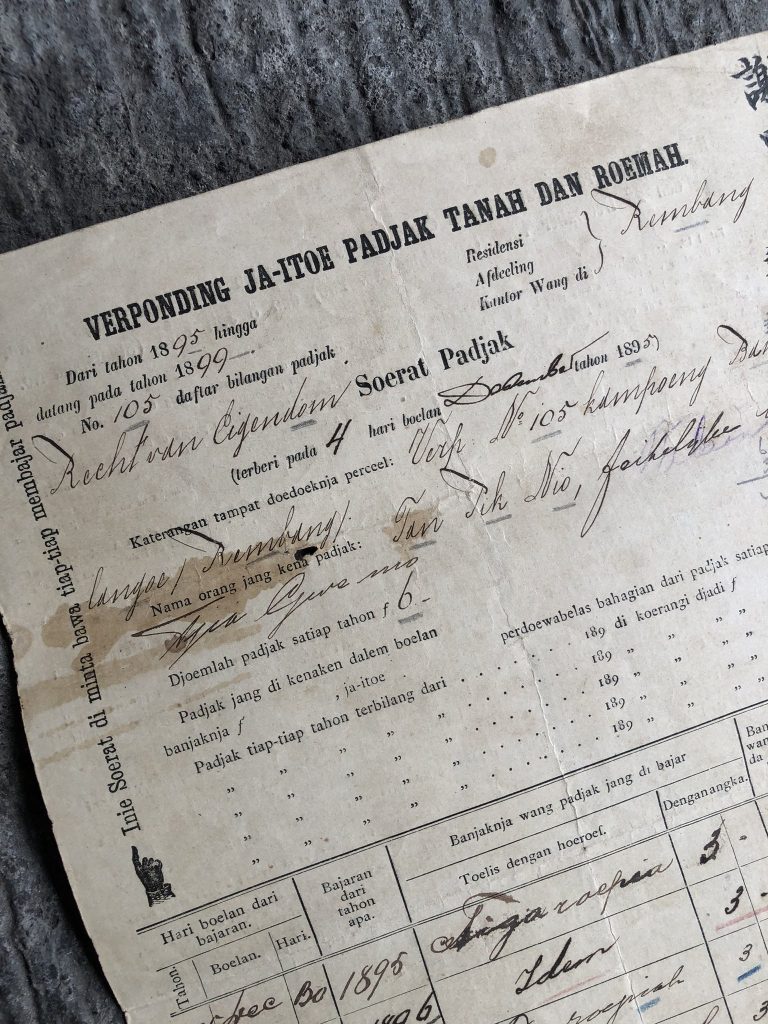 VERPONDING JA-ITOE PADJAK TANAH DAN ROEMAH.
Residensi
Afdeeling
Kantor Wang di } Rembang
Dari tahun 1895 hingga
datang pada tahun 1899
No. 105 daftar bilangan padjak
Recht van Eigendom
Soerat Padjak
(terberi pada 4 hari boelan December tahon 1895)
Katerangan tampat doedoeknja perceel: Verp. No 105 kampoeng
Rembang).
Nama orang jang kena padjak: Tan Tik Nio, feitelijke
Djoemlah padjak satiap tahon f 6.-
Padjak jang di kenaken dalem boelan perdoewabelas bahagian dari padjak satiap
banjaknja f , ja-itoe
Padjak tiap-tiap tahon terbilang dari . . . . . . . . 189 di koerangi djadi f
„ „ „ „ . . . . . . . . 189 „ „ „ „
„ „ „ „ . . . . . . . . 189 „ „ „ „
„ „ „ „ . . . . . . . . 189 „ „ „ „
Inie Soerat di minta bawa tiap-tiap membajar padjak
Hari boelan dari bajaran.
Tahon. Boelan. Hari.
Bajaran dari tahon apa.
Banjaknja wang padjak jang di bajar
Toelis dengan hoeroef.
Denganangka.
Dec 30 1895 Tiga roepia 3 -
1896 Idem 3 -
roepiah 3